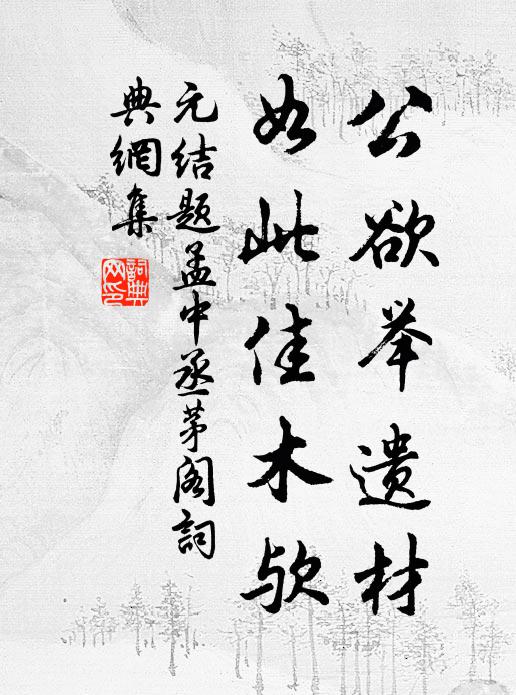 公欲举遗材
如此佳木欤
元结题孟中丞茅阁詞
典網集
詞典
网印